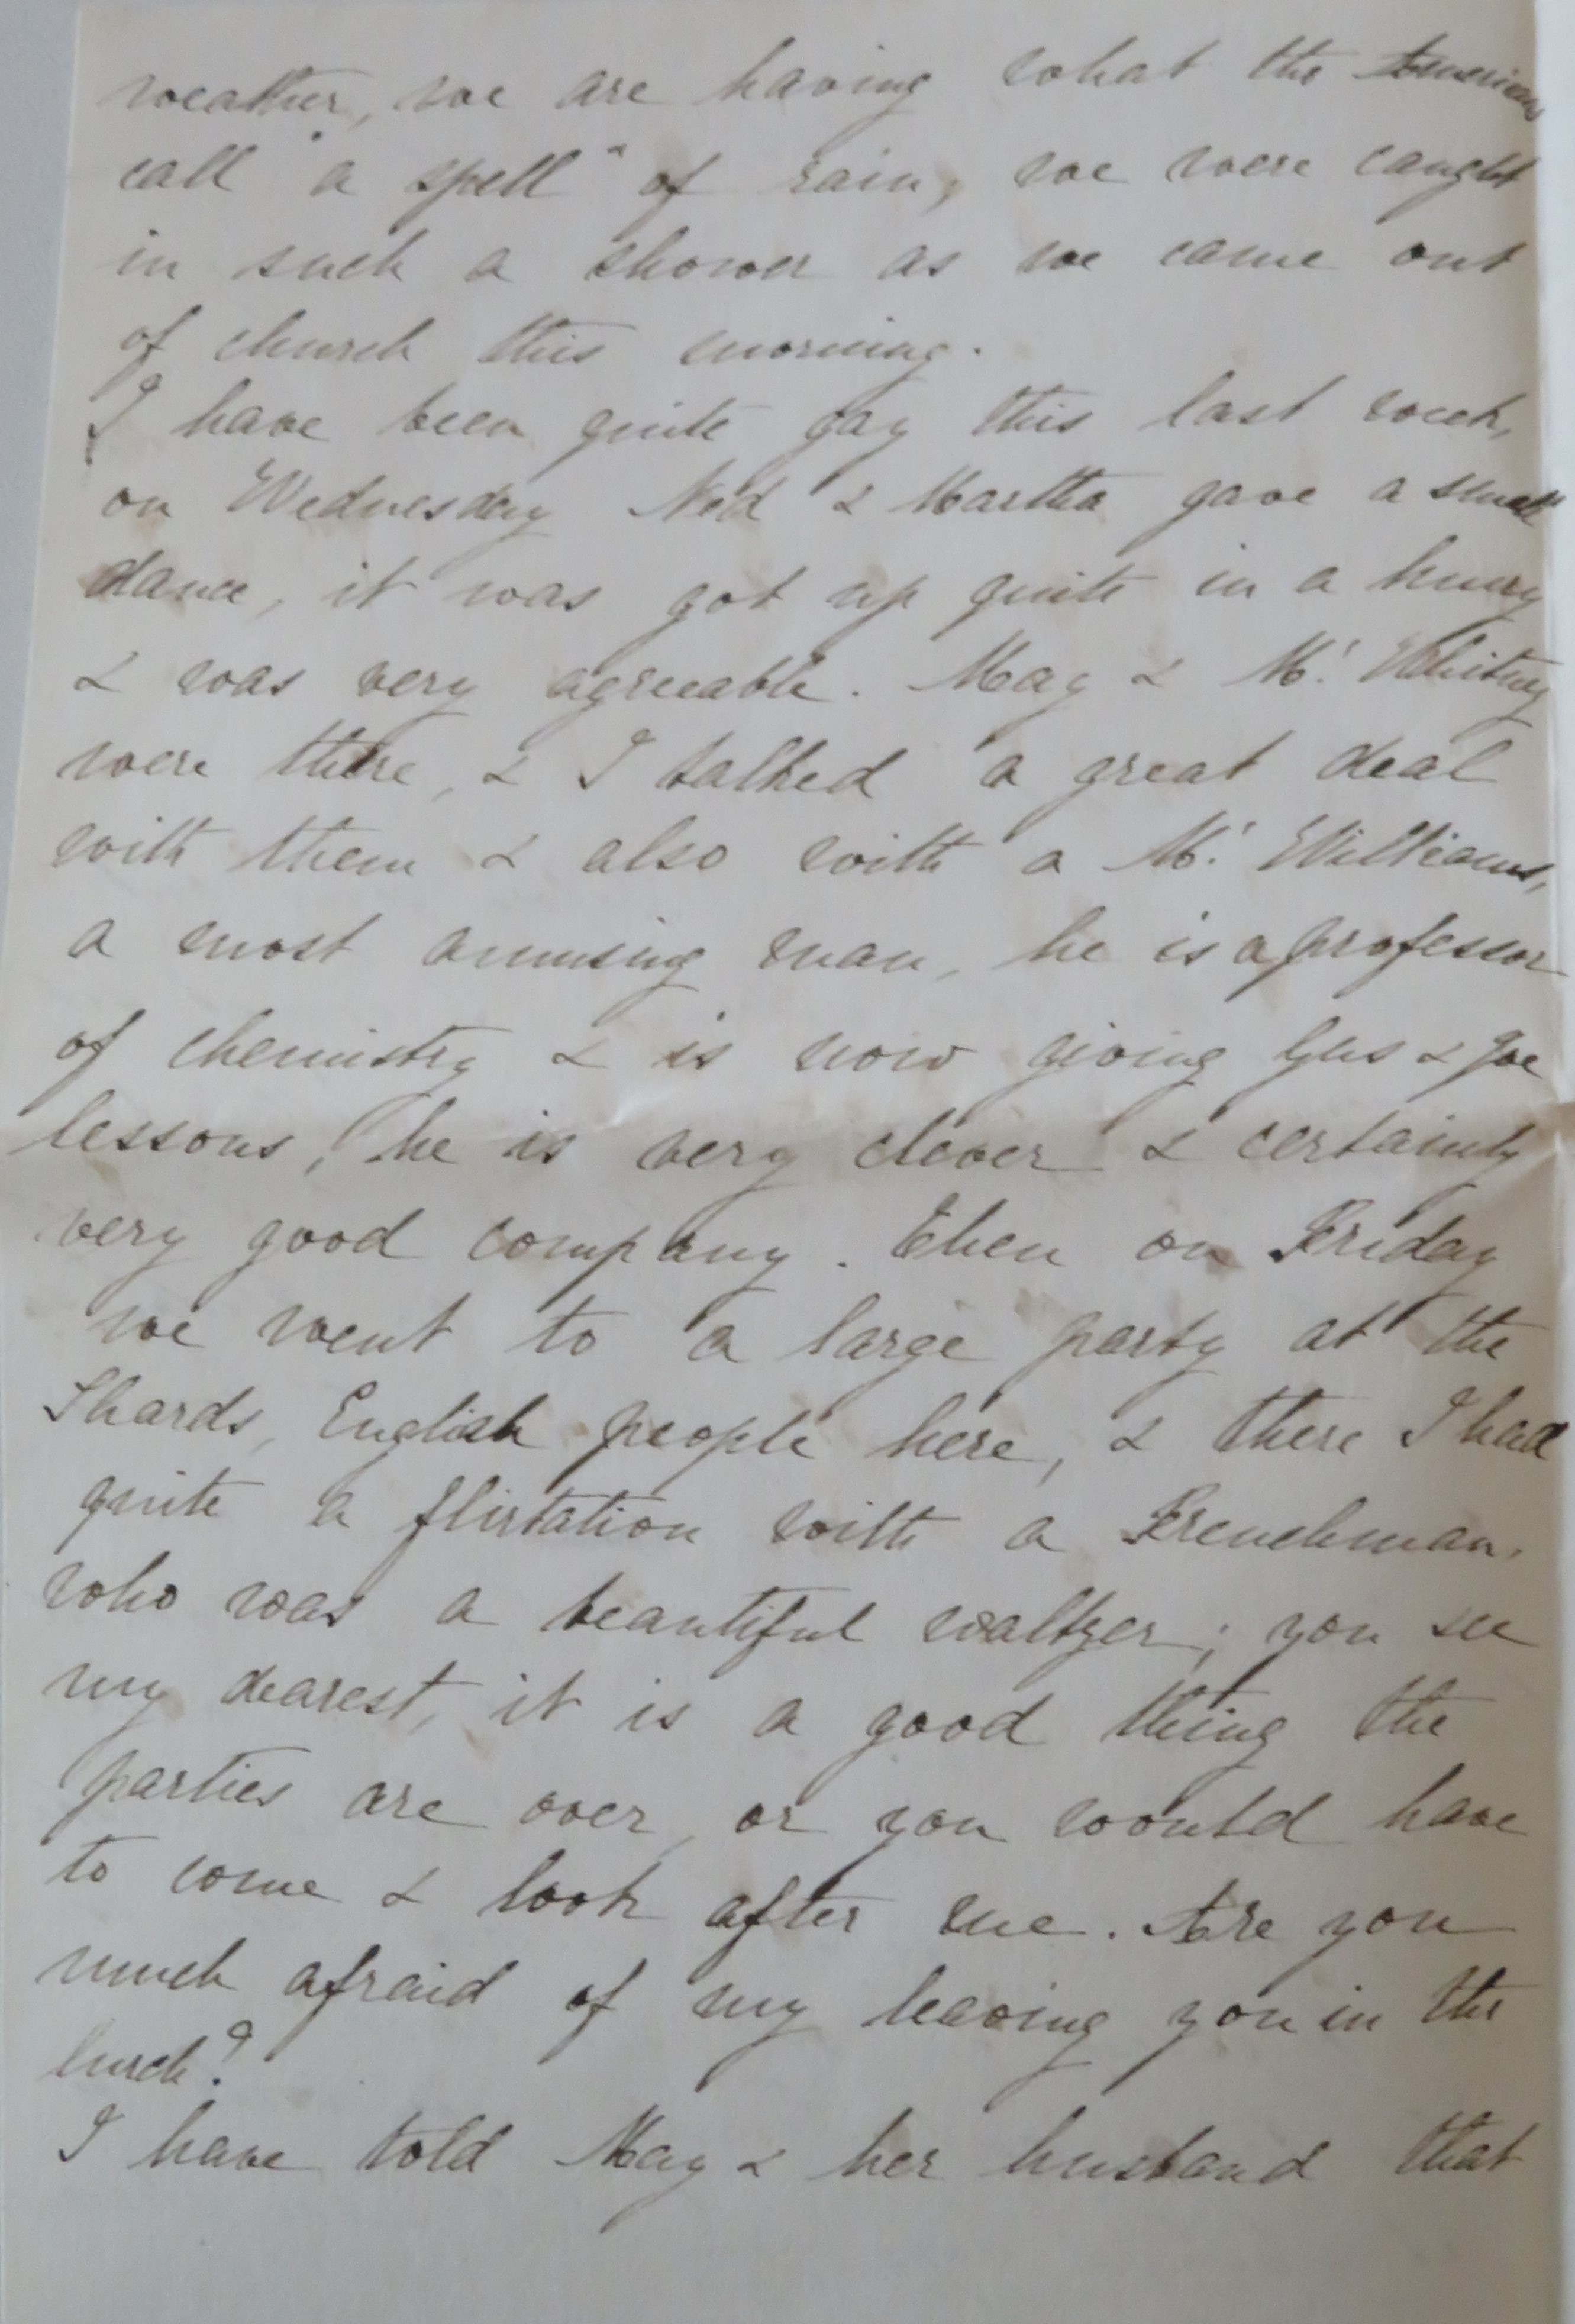 weather, we are having what the Americans
call "a spell" of rain, we were caught
in such a shower as we came out
of church this morning.
I have been quite gay this last week,
on Wednesday Ned & Martha gave a small
dance, it was got up quite in a hurry
& was very agreeable. May & Mr. Whitney
were there, & I talked a great deal
with them & also with a Mr. Williams,
a most amusing man, he is a professor
of chemistry & is now giving Gus & Joe
lessons, he is very clever & certainly
very good company. Then on Friday
we went to a large party at the
Shards, English people here, & there I had
quite a flirtation with a Frenchman,
who was a beautiful waltzer; you see
my dearest, it is a good thing the
parties are over, or you would have
to come & look after me. Are you
much afraid of my leaving you in the
lurch?
I have told May & her husband that